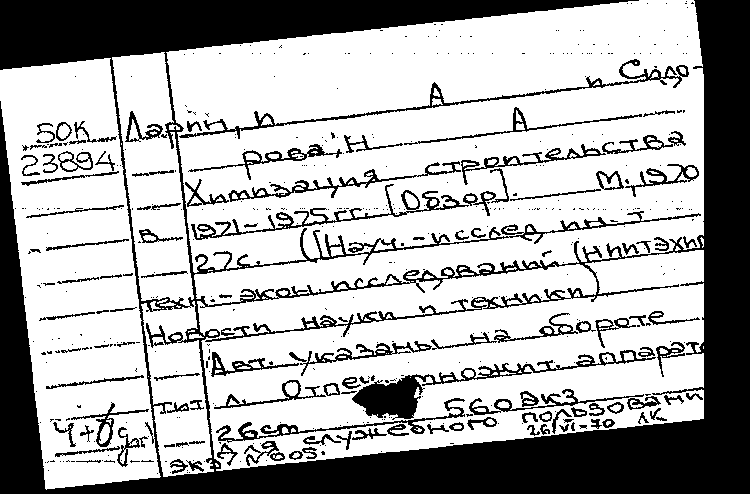 50К
23894
Ларин, И А и Сидо-
рова, Н А
Химизация строительства
в 1971-1975 гг. [Обзор]. М., 1970
27с. ([Науч.-исслед. ин-т
техн.-экон. исследований (НИИТЭХИМ
Новости науки и техники)
Авт. указаны на обороте
тит. л. Отпеч. множит. аппарат
26cm 560 экз
Для служебного пользовани
экз N 005. 26/VI-70 ЛК
4+0